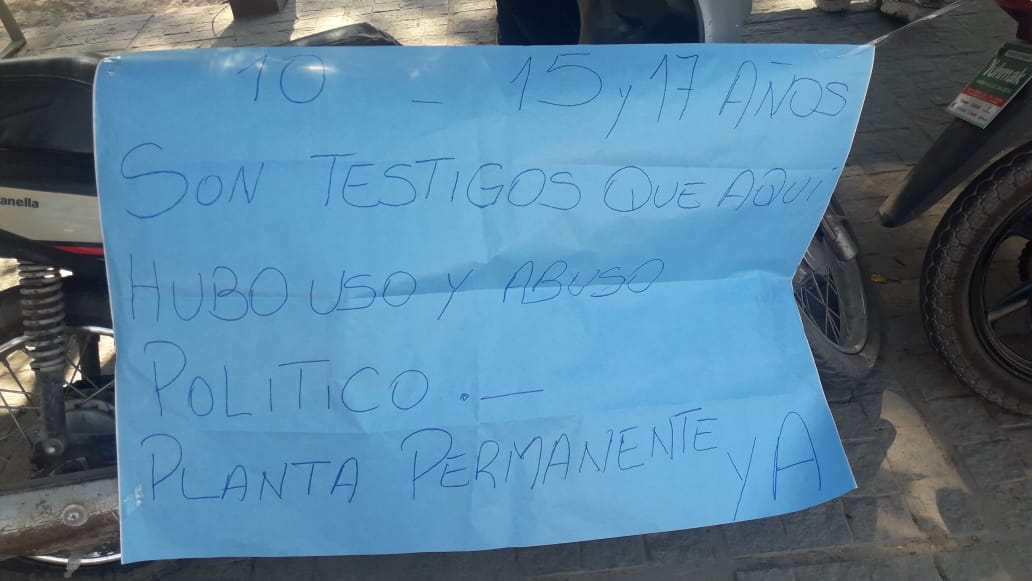 10 - 15 y 17 AÑOS
SON TESTIGOS QUE AQUI
HUBO USO Y ABUSO
POLITICO.-
PLANTA PERMANENTE Y A
anella